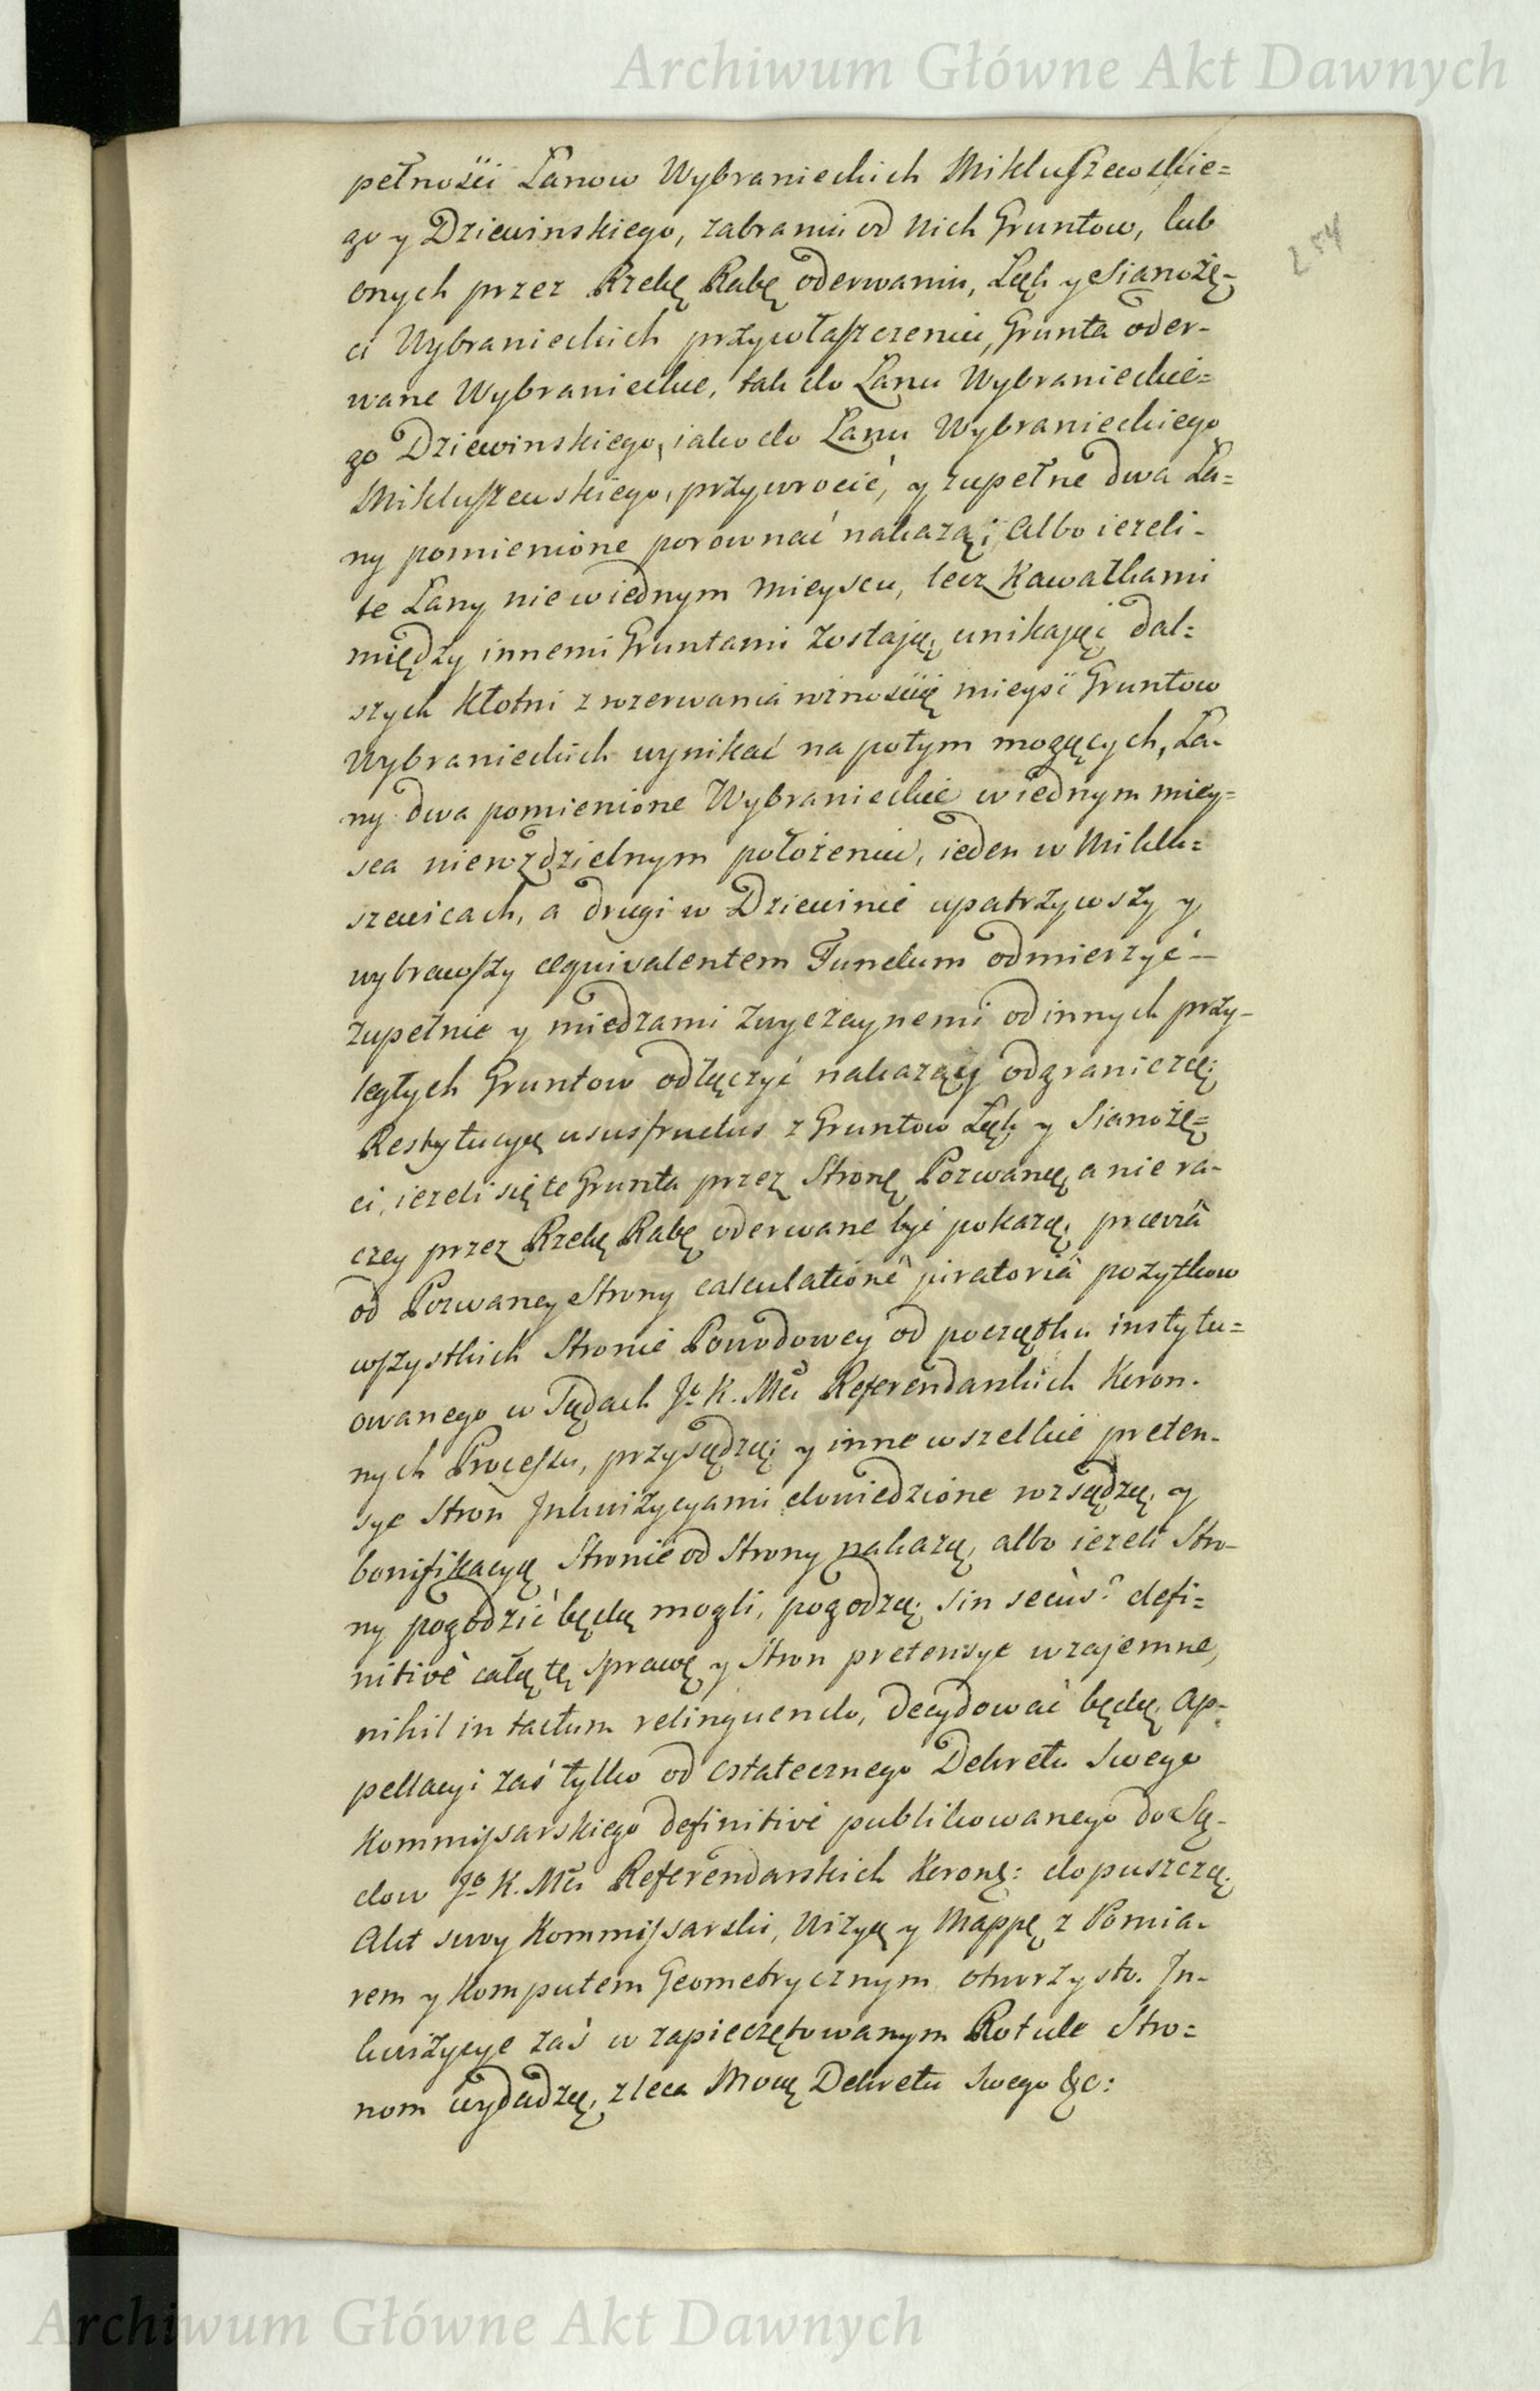 Archiwum Główne Akt Dawnych
254
pełnośći Łanow Wybranieckich Mikluszewskie=
go y Dziewinskiego, zabraniu od nich Gruntow, lub
onych przez Rzekę Rabę oderwaniu, Łąk y Sianożę-
ci Wybranieckich przywłaszczeniu, Grunta oder-
wane Wybranieckie, tak do Łanu Wybranieckie=
go Dziewinskiego, iako do Łanu Wybranieckiego
Mikluszewskiego, przywrocić, y zupełne dwa Ła=
ny pomienione porownać nakażą; Albo ieżeli-
te Łany nie wiednym mieyscu, lecz Kawałkami
między innemi Gruntami zostaią, unikaiąc dal=
szych kłotni z rozerwania roznością mieysc Gruntow
Wybranieckich wynikać napotym mogących, Ła-
ny dwa pomienione Wybranieckie wiednym miey=
sca nierozdzielnym położeniu, ieden w Miklu=
szewicach, a drugi w Dziewinie upatrzywszy y
wybrawszy aequivalentem Fundum odmierzyć-
zupełnie y miedzami zwyczaynemi od innych przy-
ległych Gruntow odłączyć nakażą y odgraniczą;
Restytucyą ususfructus z Gruntow Łąk y Sianożę=
ci, ieżeli się te Grunta przez Stronę Pozwaną, a nie ra-
czey przez Rzekę Rabę oderwane być pokażą, praeviâ
od Pozwaney Strony calculatione juratoriâ pożytkow
wszystkich Stronie Powodowey od początku instytu=
owanego w Sądach Jo K. Mći Referendarskich Koron-
nych Processu, przysądzą; y inne wszelkie preten-
sye Stron Inkwizycyami dowiedzione rozsądzą, y
bonifikacyą Stronie od Strony nakażą, albo ieżeli Stro-
ny pogodzić będą mogli, pogodzą; sin secùs? defi=
nitivè całą tę sprawę y Stron pretensye wzajemne,
nihil intactum relinquendo, decydować będą, Ap=
pellacyi zaś tylko od ostatecznego Dekretu swego
Kommissarskiego definitivè publikowanego do Są-
dow Jo K. Mći Referendarskich Koronn: dopuszczą,
Akt swoy Kommissarski, Wizyą y Mappę z Pomia-
rem y Komputem Geometrycznym otworzysto. In-
kwizycye zaś w zapieczętowanym Rotule Stro=
nom wydadzą, zleca Mocą Dekretu swego &c:
Archiwum Główne Akt Dawnych